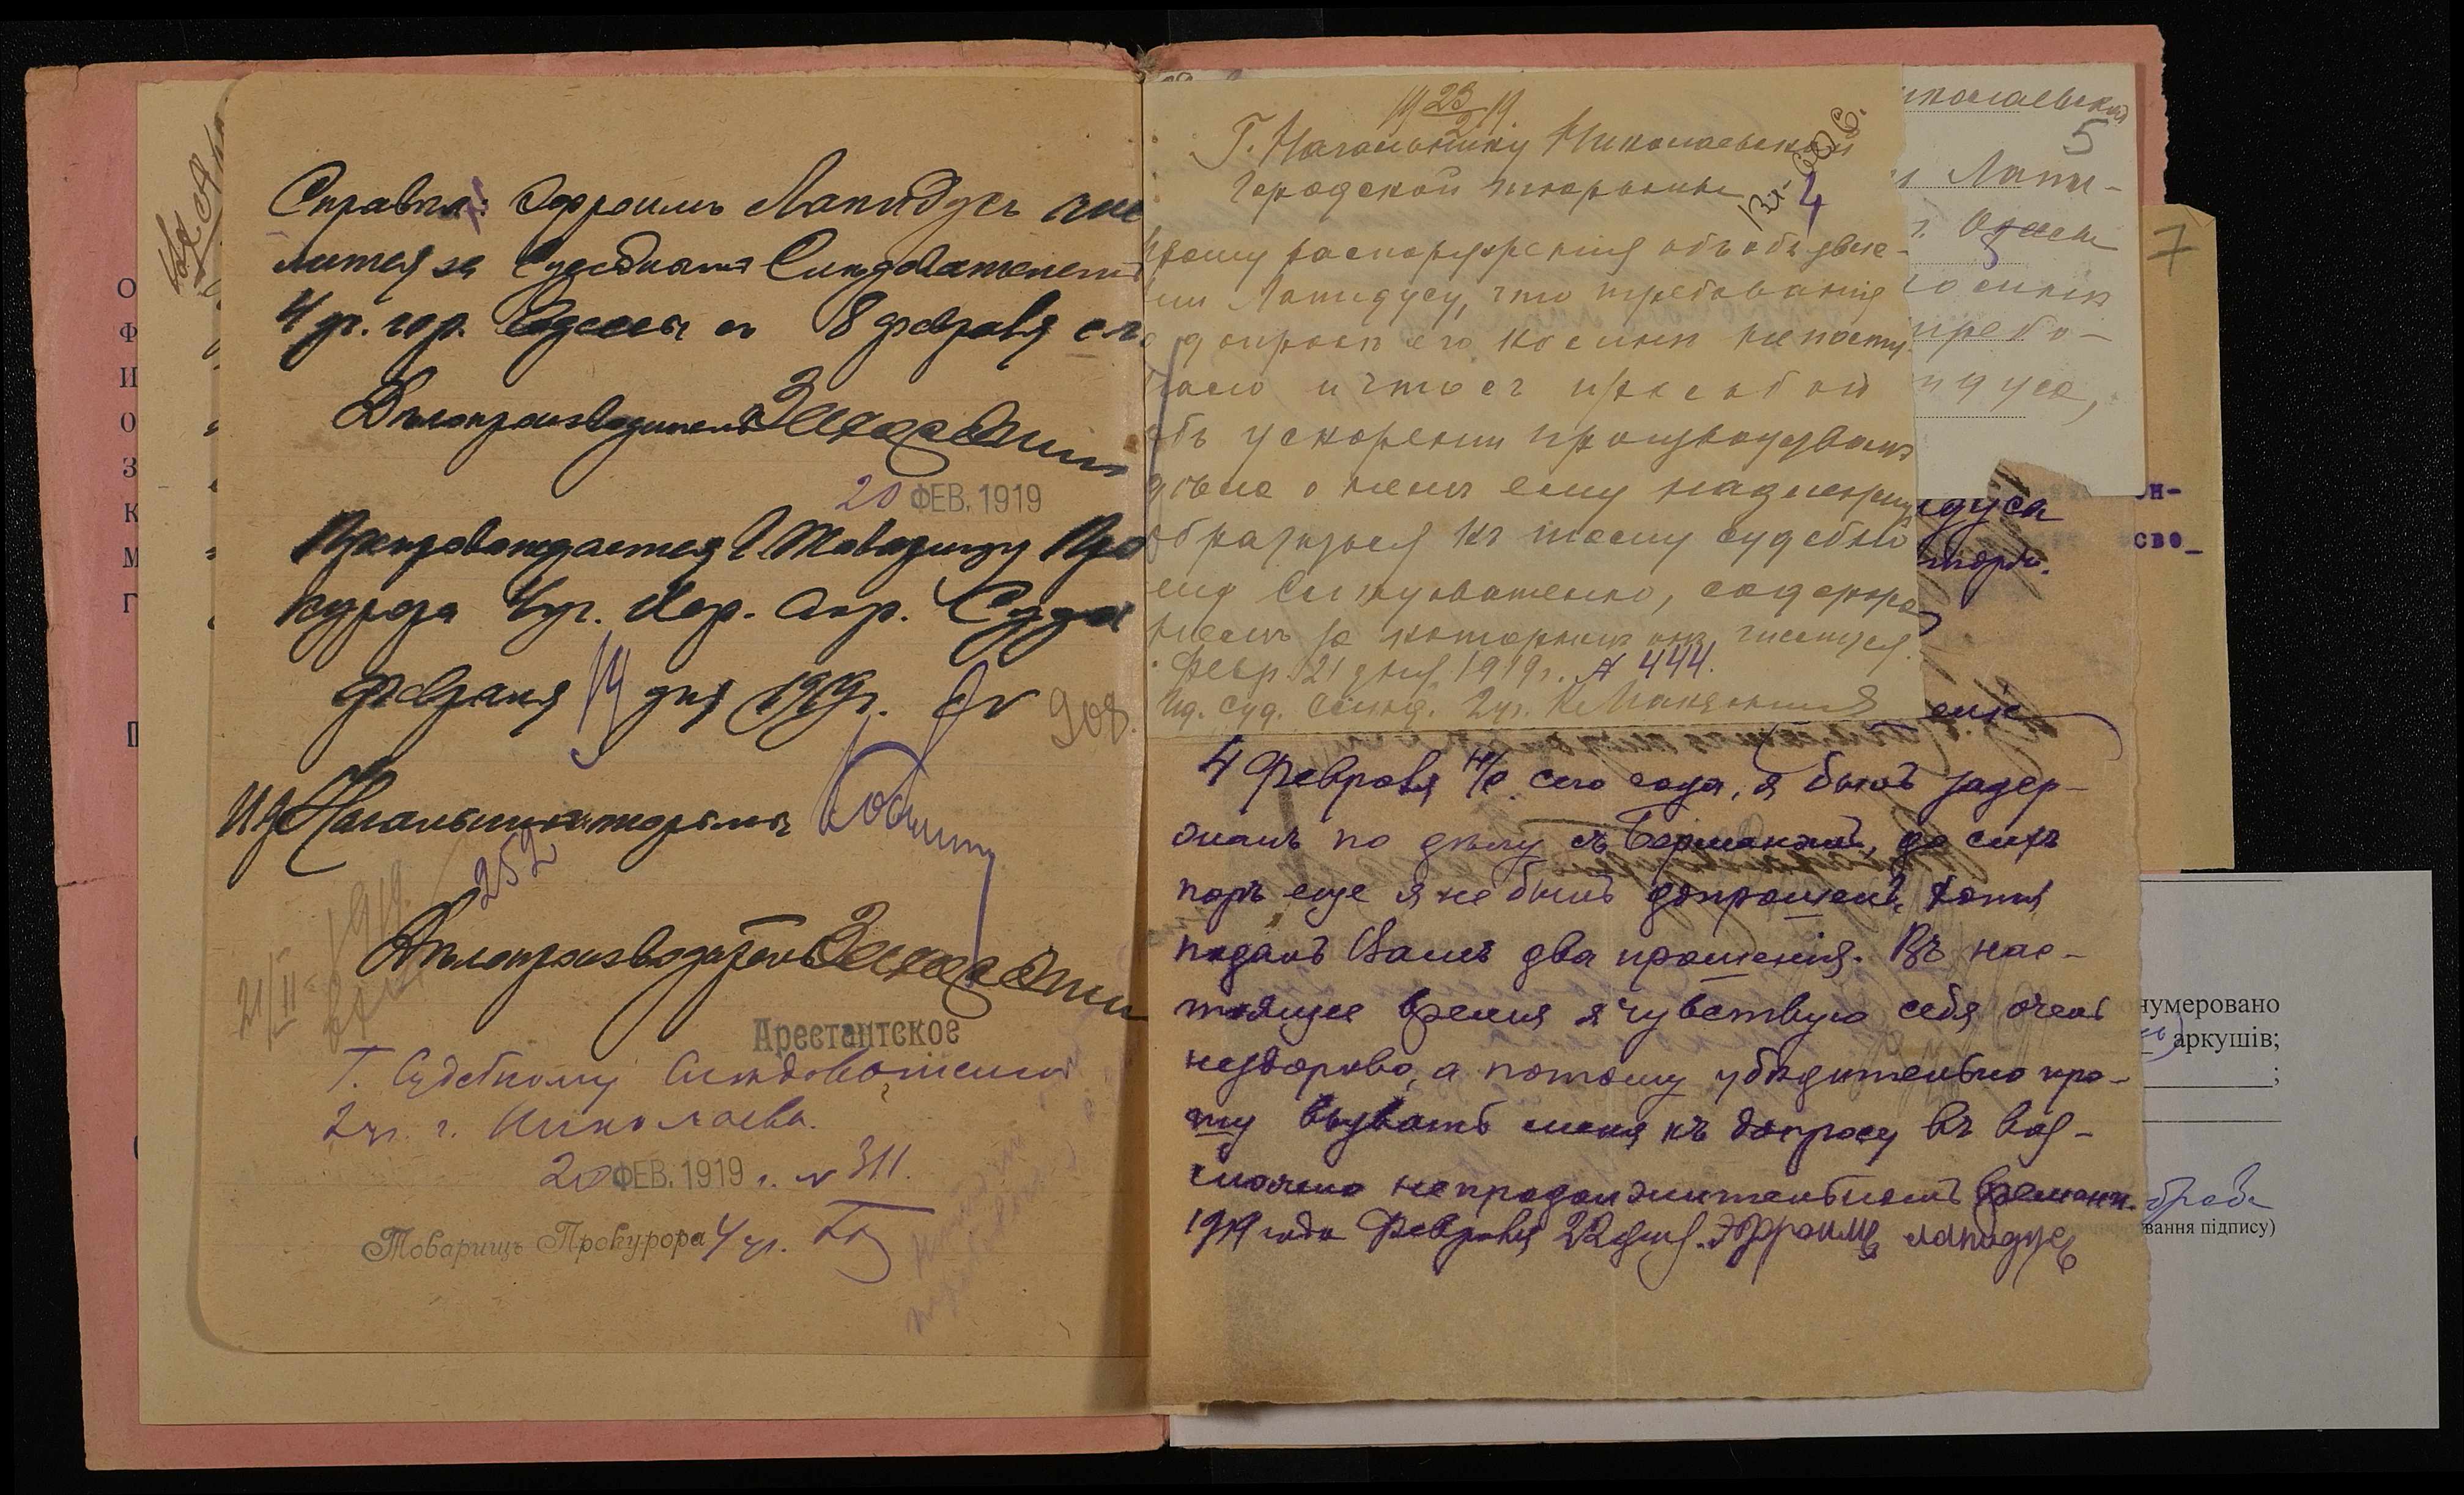 Справка: Эфроимъ Лапидусъ чис
лится за Судебнымъ Слѣдователемъ
4 уч. гор. Одессы съ 8 февраля с.г.
Дѣлопроизводитель
20 ФЕВ. 1919
Препровождается Г. Товарищу Про
курора 4 уч. Хер. Окр. Суда
февраля 19 дня 1919 г. №
908.
И.д. Начальника тюрьмы
252
Дѣлопроизводитель
21/II 1919
Арестантское
Г. Судебному Слѣдователю
2 уч. г. Николаева.
20 ФЕВ. 1919 г. № 311.
Товарищъ Прокурора 4 уч.
19 23/2 19
Г. Начальнику Николаевской
Городской тюрьмы
4
распоряженія объ объявле-
нии Лапидусу, что требованія
о допросѣ его ко мнѣ не посту
пало и что съ просьбой
объ ускореніи производствомъ
дѣла о немъ ему надлежитъ
обратиться къ тому судебно
му Слѣдователю, содержа
ніемъ за которымъ онъ числится.
Февр. 21 дня 1919 г. № 444.
И.д. Суд. Слѣд. 2 уч.
4 Февраля н/с. сего года, я былъ задер-
жанъ по дѣлу съ Берманомъ, до сихъ
поръ еще я не былъ допрошенъ, хотя
подалъ Вамъ два прошенія. Въ нас-
тоящее время я чувствую себя очень
нездорово, а потому убѣдительно про-
шу вызвать меня къ допросу въ воз-
можно непродолжительномъ времени.
1919 года Февраля 22 дня. Эфроимъ лапидусъ
иколаевской
5
Лапи-
г. Одессы
ко мнѣ
требо-
идуса,
7
идуса
н-
сво_
нумеровано
аркушів;
вання підпису)
О
Ф
И
О
З
К
М
Г